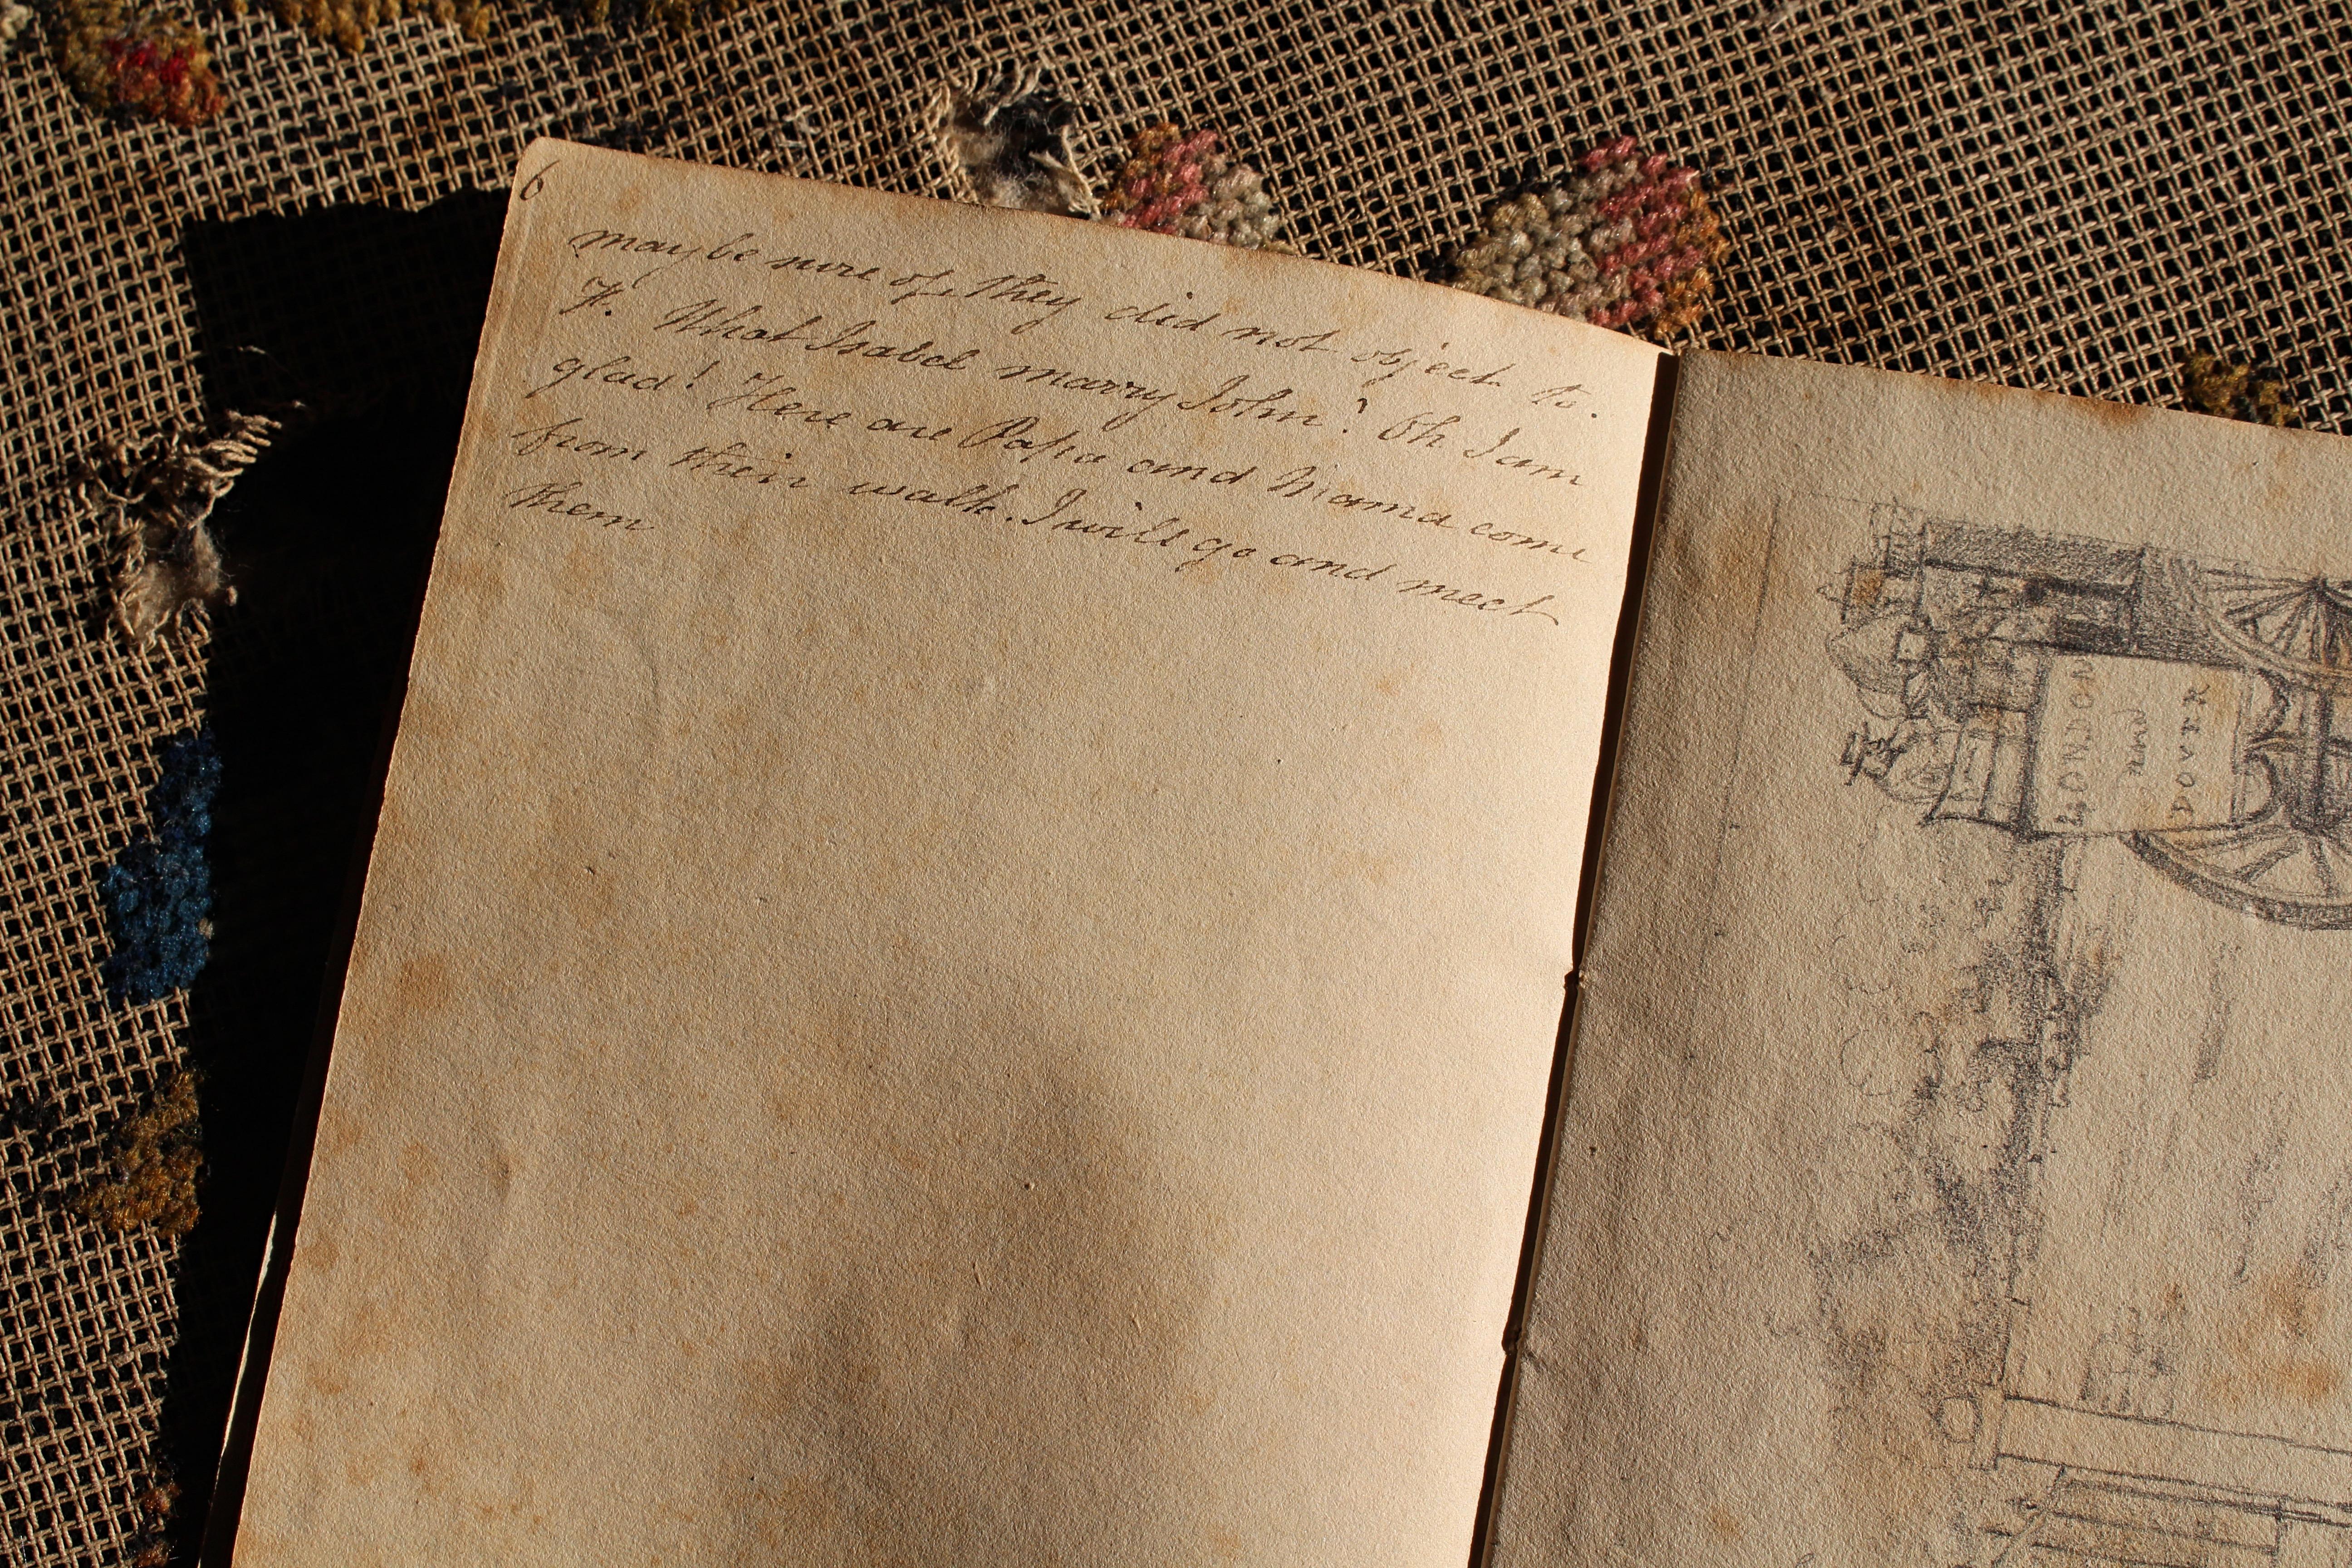 6
may be sure of, they did not object to.
F. What Isabel marry John? Oh I am
glad! Here are Papa and Mama come
from their walk. I will go and meet
them
LONDON
and
DOVER